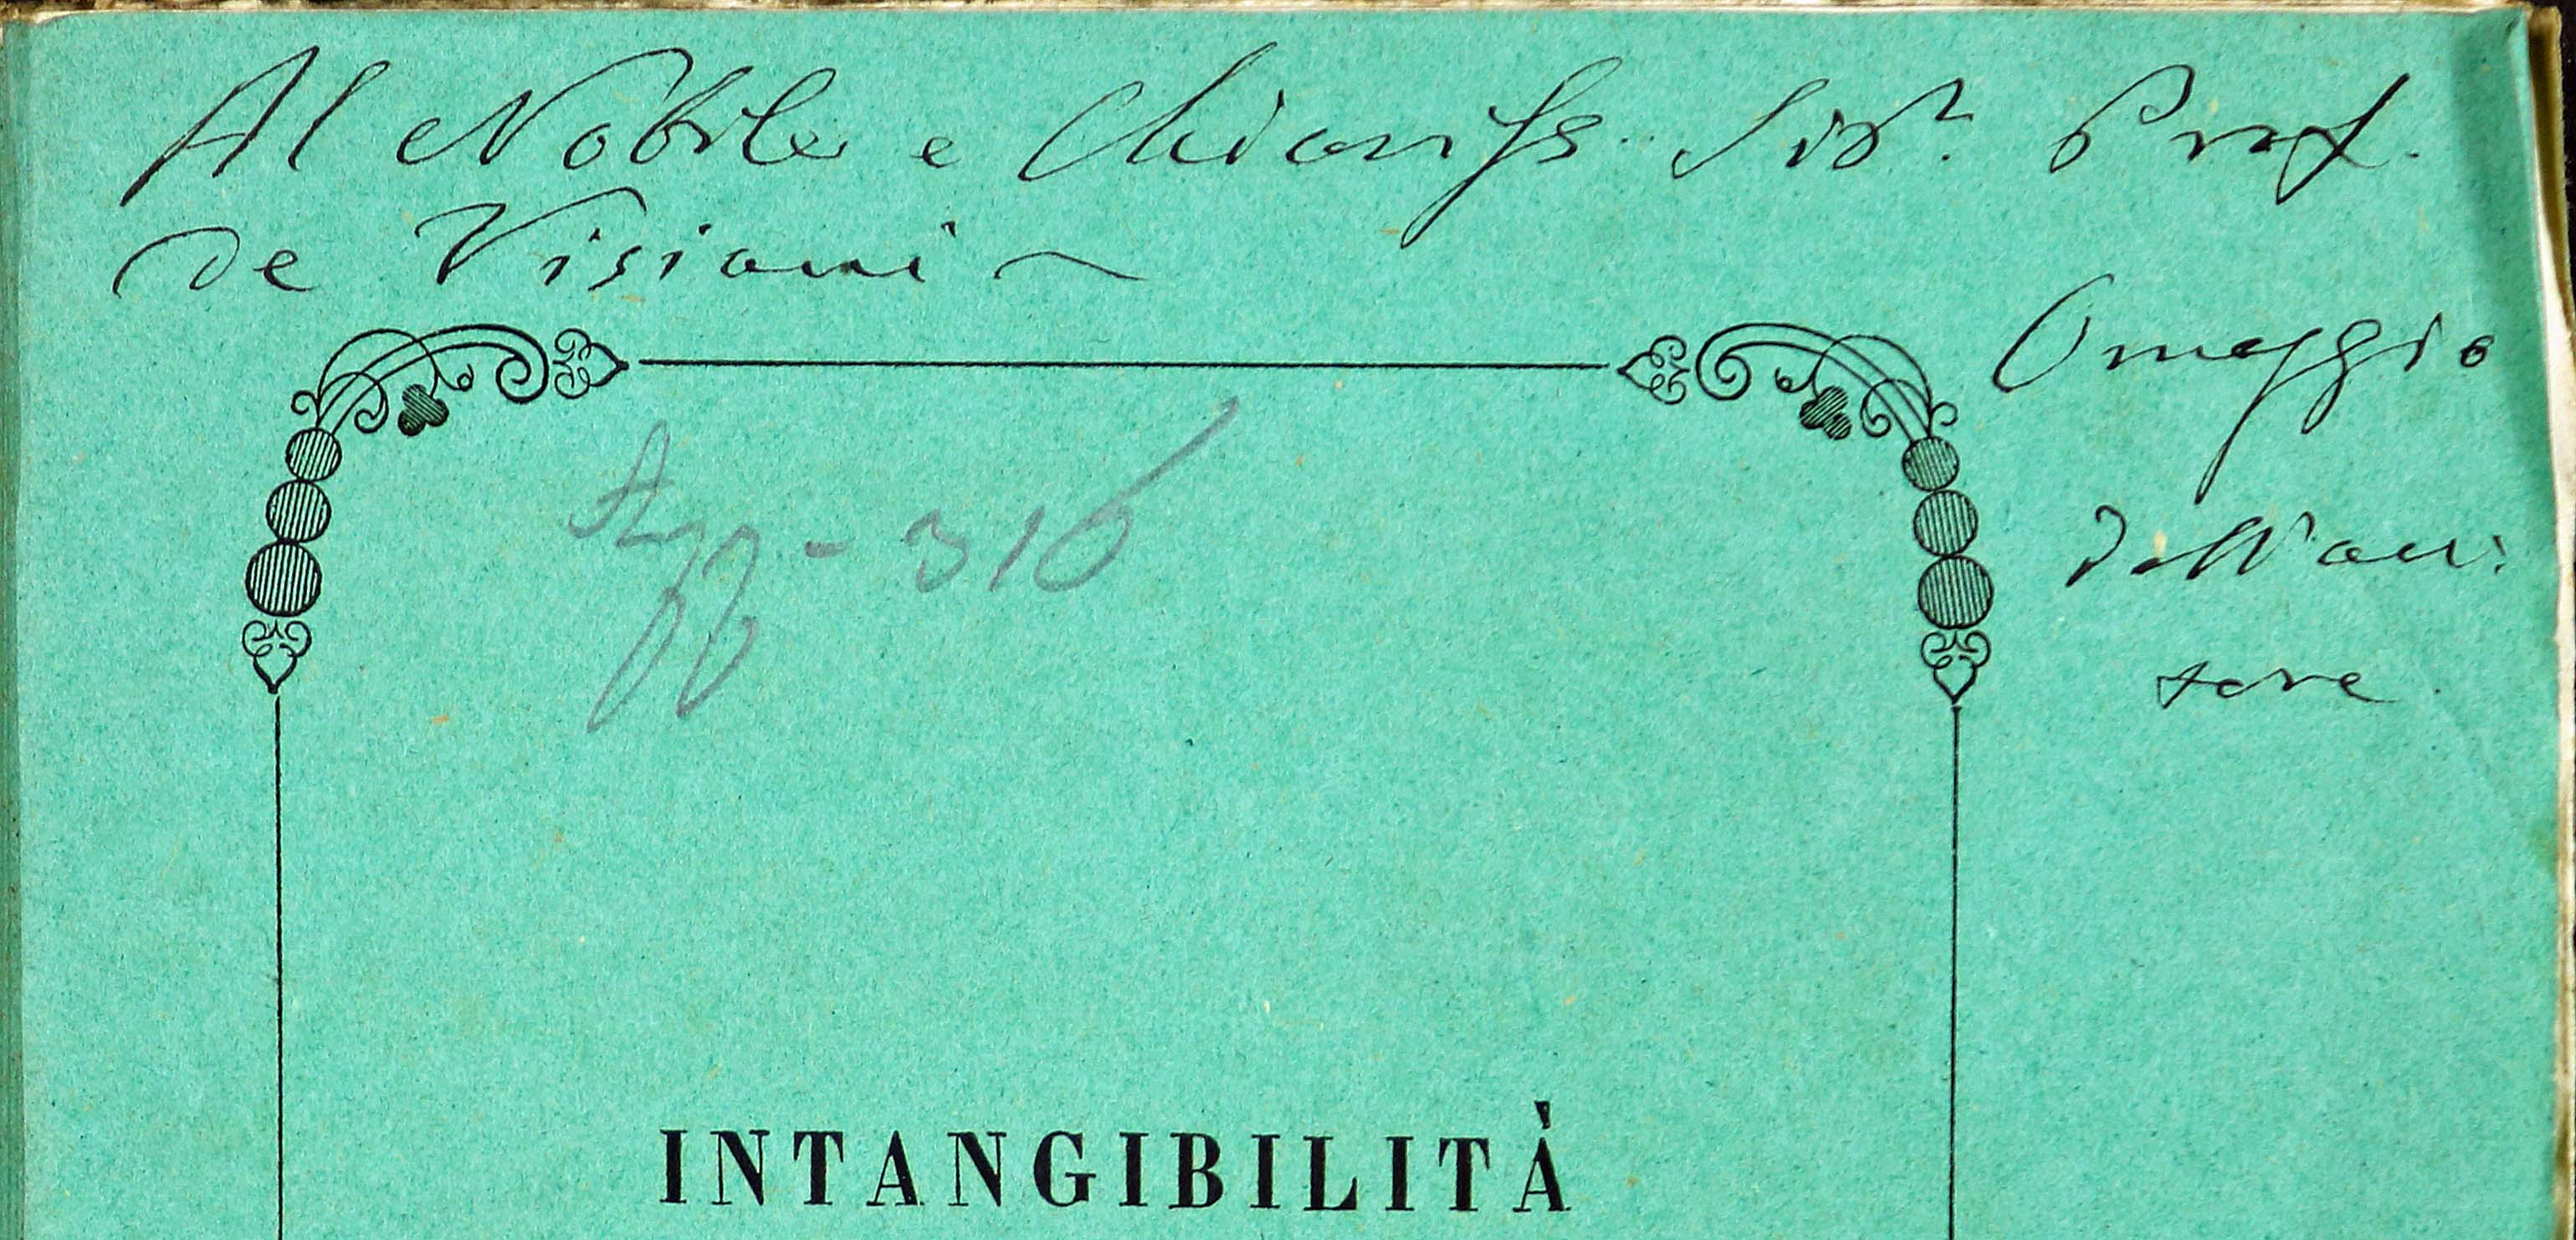 Al Nobile e Chiariss. Sigr. Prof.
de Visiani
Omaggio
dell'au:
tore
- 316
INTANGIBILITÀ